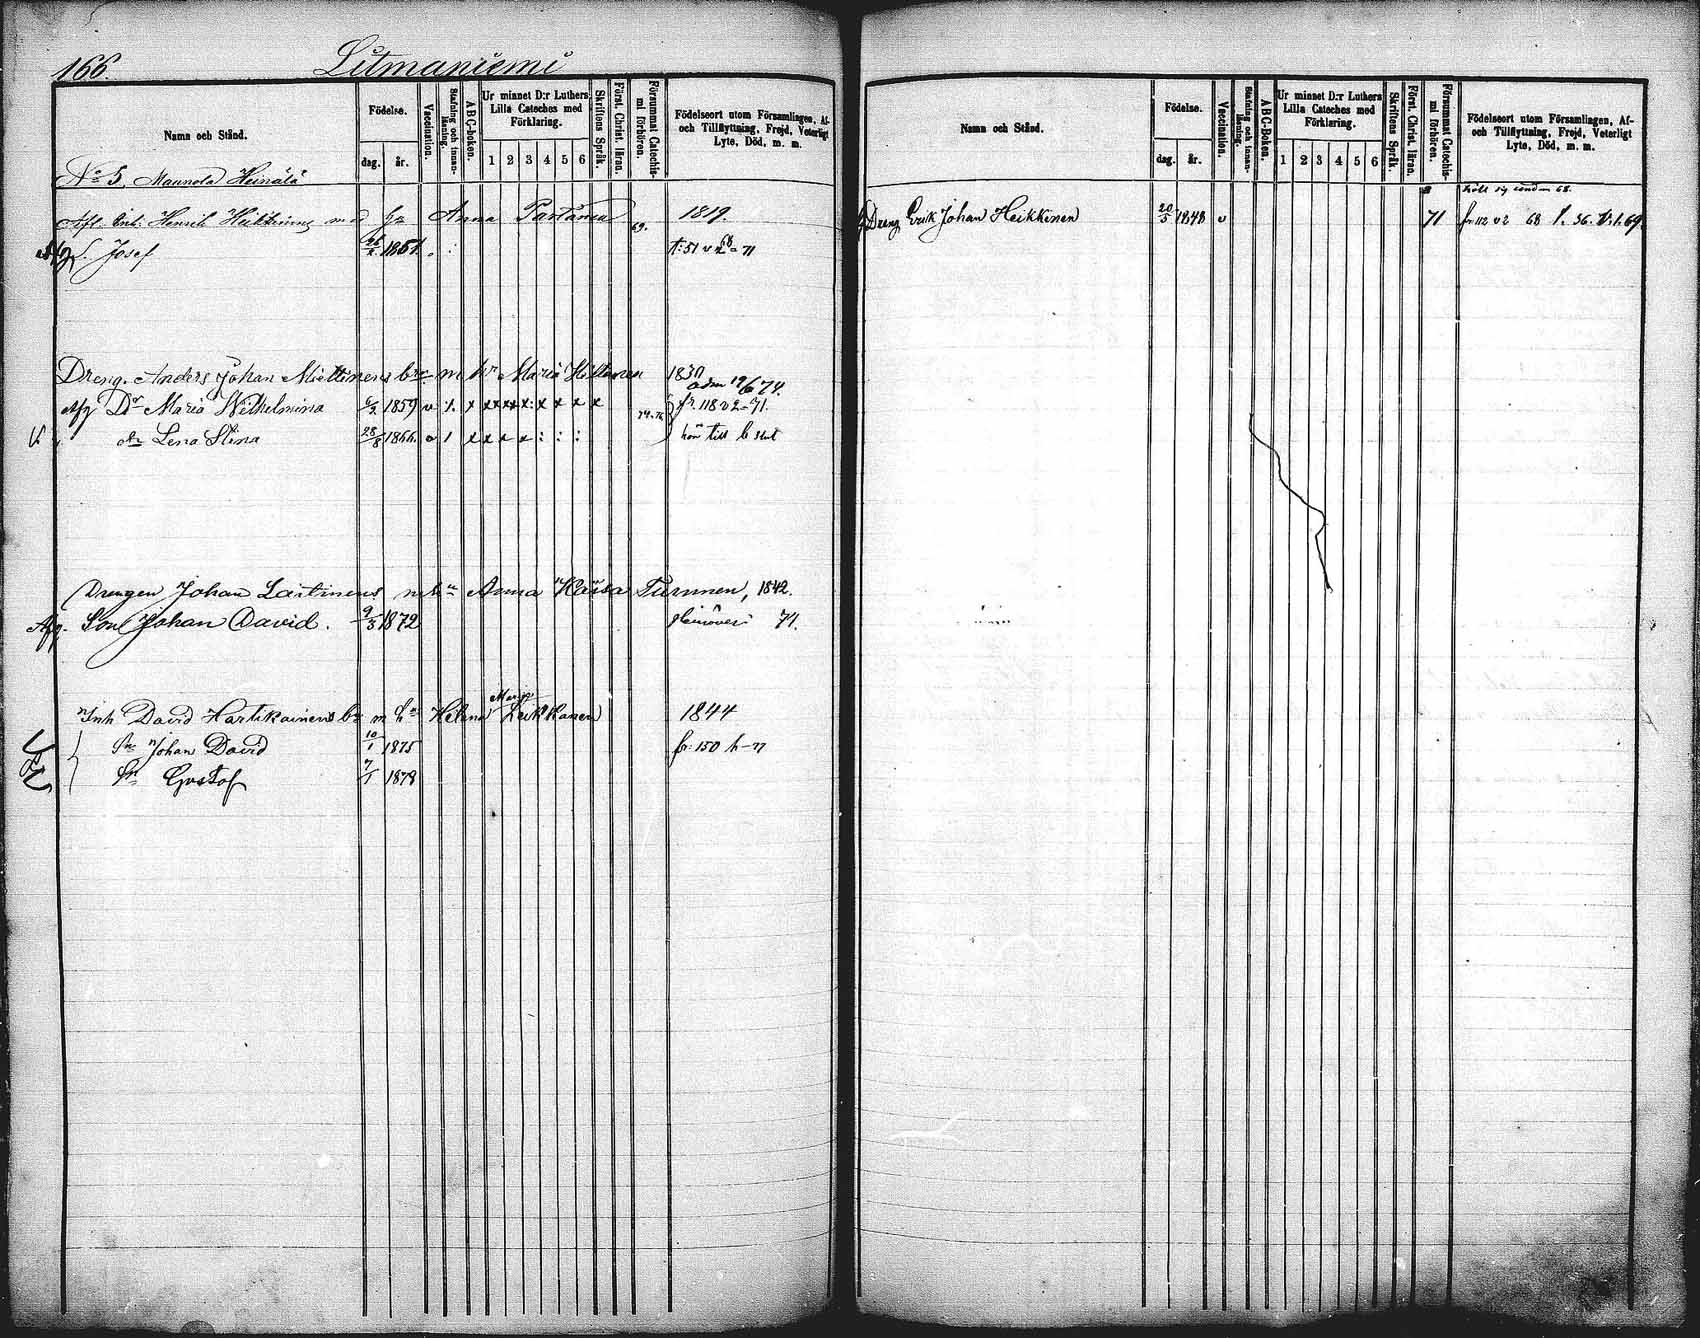 166.
Litmaniemi
Namn och Stånd.
Födelse.
dag. år.
Vaccination.
Stafning och innanläsning.
ABC-boken.
Ur minnet D:r Luthers Lilla Cateches med Förklaring.
1 2 3 4 5 6
Skriftens Språk.
Först. Christ. läran.
Försummat Catechismi förhören.
Födelseort utom Församlingen, Af- och Tillflyttning, Frejd, Veterligt Lyte, Död, m. m.
No 5, Mannola Heinälä
Afl. Inh: Henrik Heikkinens Anna Partanen 69. 1819.
Josef 26/2 1861. t: 51 v 2 68 - 71
Dreng. Anders Johan Miettinens br m hr Maria Hiltunen 1830
Dr Maria Wilhelmina 6/2 1859 v x x x x x x x x x fr. 118 v 2 - 71.
Lena Stina 28/8 1866. v x x x x : : :
Drengen Johan Laitinens Anna Kaisa Turunen, 1842.
Afg. Son Johan David. 9/3 1872 71.
Inh David Hartikainens br m hr Helena Leikkanen 1844
Sn Johan David 10/1 1875 fr: 150 h - 77
Sn Gustaf 7/1 1878
Namn och Stånd.
Födelse.
dag. år.
Vaccination.
Stafning och innanläsning.
ABC-Boken.
Ur minnet D:r Luthers Lilla Cateches med Förklaring.
1 2 3 4 5 6
Skriftens Språk.
Först. Christ. läran.
Försummat Catechismi förhören.
Födelseort utom Församlingen, Af- och Tillflyttning, Frejd, Veterligt Lyte, Död, m. m.
Dreng Erik Johan Heikkinen 20/5 1848 v 71 fr 112 v 2 68